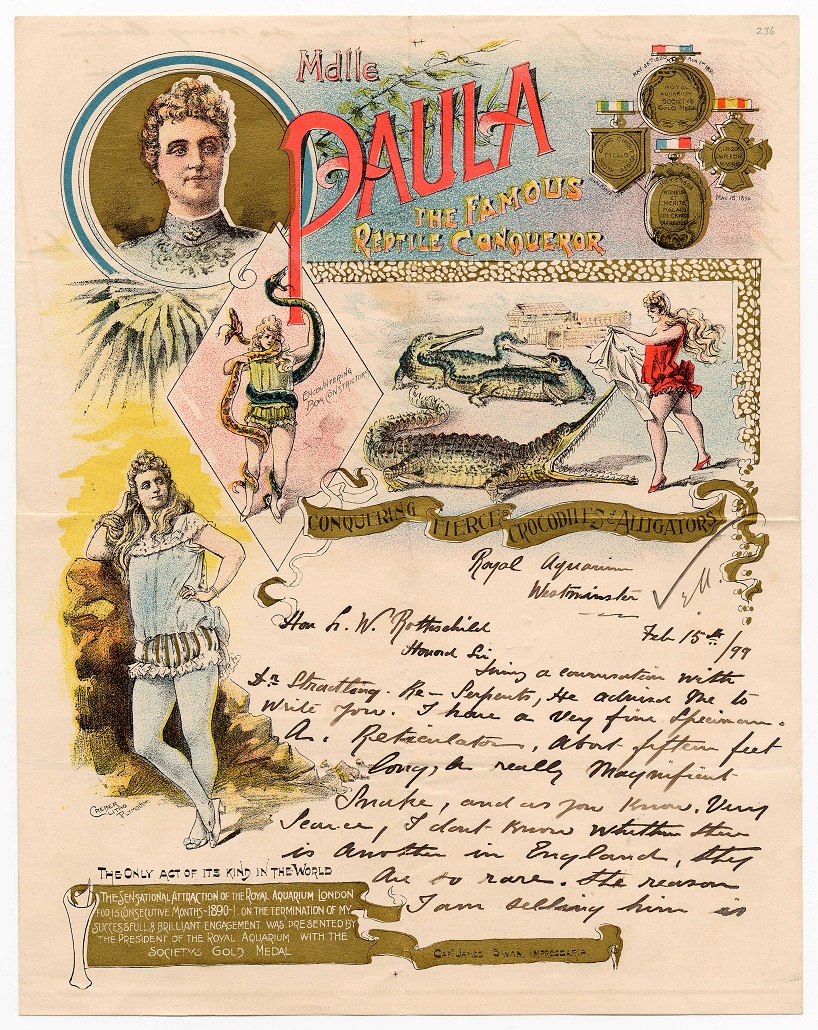 236
Mdlle
PAULA
THE FAMOUS
REPTILE CONQUEROR
ROYAL
AQUARIUM
SOCIETYS
GOLD MEDAL
MAY 15 1892
ENCOUNTERING
BOA CONSTRICTORS
CONQUERING FIERCE CROCODILES & ALLIGATORS
Royal Aquarium
Westminster
Feb 15th/99
Hon L. W. Rothschild
Honord Sir
a conversation with
Dr Stradling. Re- Serpents, He advised Me to
Write you. I have a Very fine Specimen.
A. Reticulatus, About fifteen feet
long, A really Magnificent
Snake, and as you Know. Very
Scarce, I dont Know Whether there
is Another in England, they
Are so rare. The reason
I am Selling him is
CREBER
LITHO
PLYMOUTH
THE ONLY ACT OF ITS KIND IN THE WORLD
THE SENSATIONAL ATTRACTION OF THE ROYAL AQUARIUM LONDON
FOR 15 CONSECUTIVE MONTHS-1890-1. ON THE TERMINATION OF MY
SUCCESSFULL & BRILLIANT ENGAGEMENT WAS PRESENTED BY
THE PRESIDENT OF THE ROYAL AQUARIUM WITH THE
SOCIETYS GOLD MEDAL
CAPT JAMES SWAN, IMPRESSARIA.